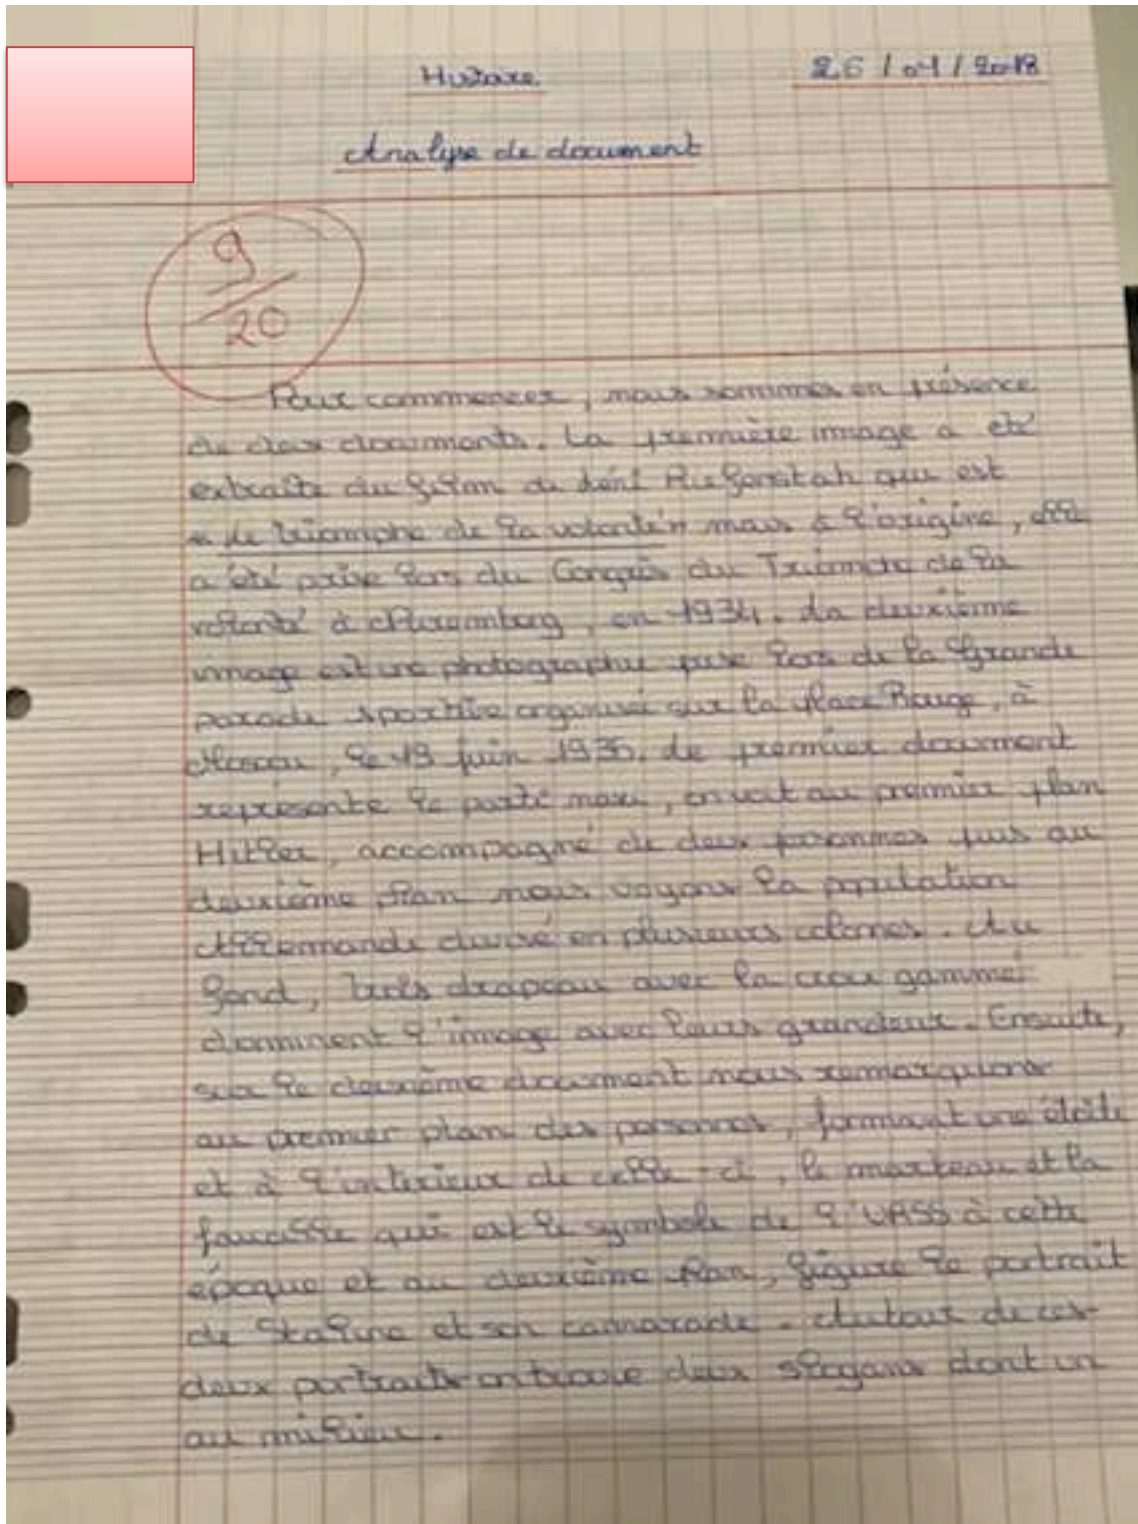 Histoire.
26/04/2018
Analyse de document
9/20
Pour commencer, nous sommes en présence
de deux documents. La première image a été
extraite du film de Léni qui est
« Le triomphe de la volonté » mais à l'origine, elle
a été prise lors du Congrès du Triomphe de la
volonté à Nuremberg, en 1934. La deuxième
image est une photographie prise lors de la Grande
parade sportive organisée sur la place Rouge, à
Moscou, le juin. Le premier document
représente le parti nazi, on voit au premier plan
Hitler, accompagné de deux personnes puis au
deuxième plan nous voyons la population
Allemande divisé en plusieurs colonnes. Au
fond, trois drapeau avec la croix gammé
dominent l'image avec leurs grandeur. Ensuite,
sur le deuxième document nous remarquons
au premier plan des personnes, formant une étoile
et à l'intérieur de celle-ci, le marteau et la
faucille qui est le symbole de l'URSS à cette
époque et au deuxième plan, figure le portrait
de Staline et son camarade. Autour de ces
deux portraits on trouve deux slogans dont un
au milieu.